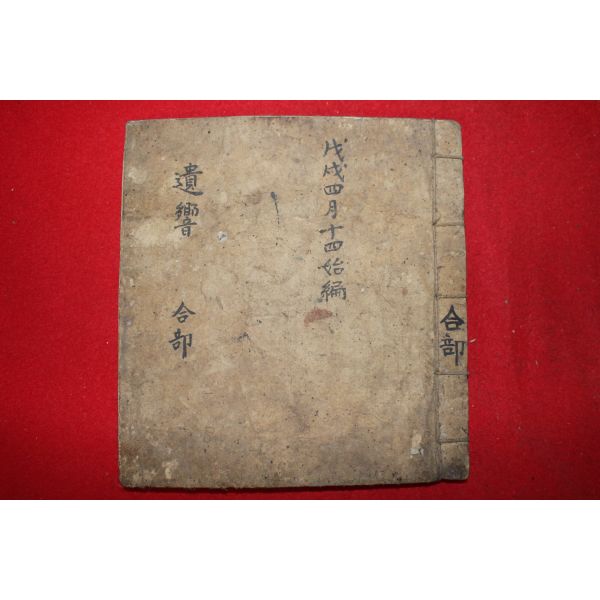 戊戌四月十四始編
遺響 合部
合部